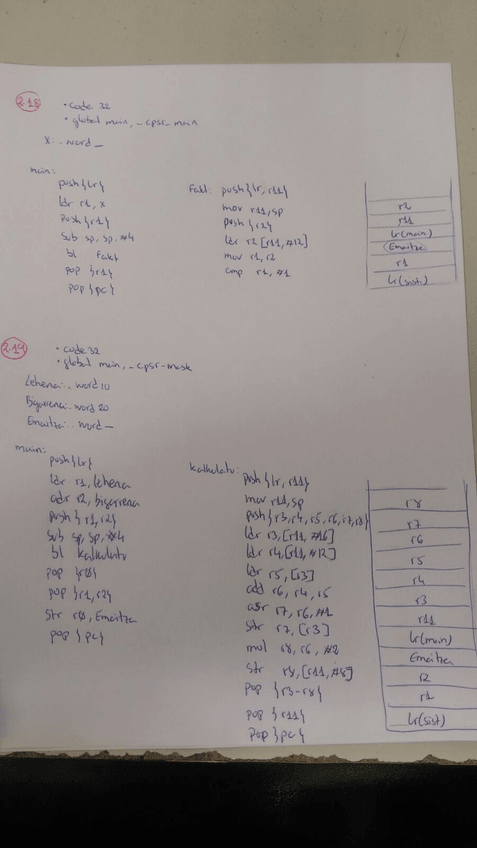 2.18
• code 32
• global main, _cpsr_mask
x: .word _
main:
push {lr}
ldr r1, x
push {r1}
sub sp, sp, #4
bl Fakt
pop {r1}
pop {pc}
Fakt: push {lr, r11}
mov r11, sp
push {r2}
ldr r2 [r11, #12]
mov r1, r2
cmp r1, #1
r2
r11
lr(main)
Emaitza
r1
lr(sist)
2.19
• code 32
• global main, _cpsr-mask
Lehena: .word 10
Bigarrena: .word 20
Emaitza: .word _
main:
push {lr}
ldr r1, lehena
adr r2, bigarrena
push {r1, r2}
sub sp, sp, #4
bl kalkulatu
pop {r0}
pop {r1, r2}
str r0, Emaitza
pop {pc}
kalkulatu:
push {lr, r11}
mov r11, sp
push {r3, r4, r5, r6, r7, r8}
ldr r3, [r11, #16]
ldr r4, [r11, #12]
ldr r5, [r3]
add r6, r4, r5
asr r7, r6, #1
str r7, [r3]
mul r8, r6, #2
str r8, [r11, #8]
pop {r3-r8}
pop {r11}
pop {pc}
r8
r7
r6
r5
r4
r3
r11
lr(main)
Emaitza
r2
r1
lr(sist)